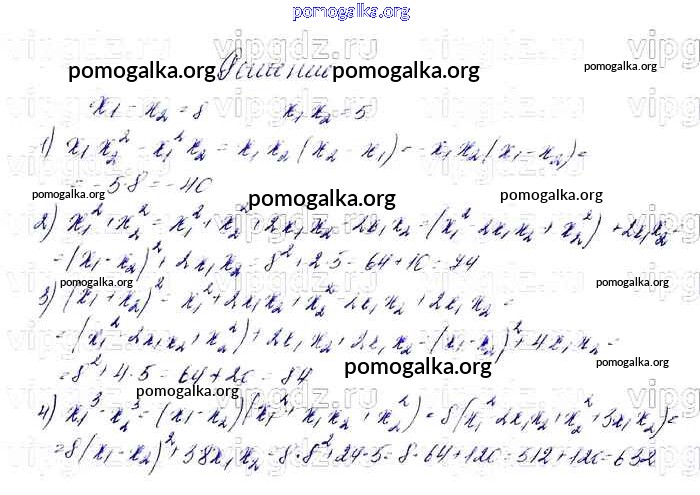 pomogalka.org
vipgdz.ru vipgdz.ru vipgdz.ru
Решение
pomogalka.org pomogalka.org pomogalka.org
x₁ - x₂ = 8 x₁x₂ = 5
1) x₁x₂² - x₁²x₂ = x₁x₂(x₂ - x₁) = -x₁x₂(x₁ - x₂) =
= -5·8 = -40
pomogalka.org pomogalka.org pomogalka.org
2) x₁² + x₂² = x₁² + x₂² + 2x₁x₂ - 2x₁x₂ = (x₁² - 2x₁x₂ + x₂²) + 2x₁x₂ =
= (x₁ - x₂)² + 2x₁x₂ = 8² + 2·5 = 64 + 10 = 74
pomogalka.org pomogalka.org
3) (x₁ + x₂)² = x₁² + 2x₁x₂ + x₂² - 2x₁x₂ + 2x₁x₂ =
= (x₁² - 2x₁x₂ + x₂²) + 2x₁x₂ + 2x₁x₂ = (x₁ - x₂)² + 4x₁x₂ =
= 8² + 4·5 = 64 + 20 = 84
pomogalka.org pomogalka.org
pomogalka.org
4) x₁³ - x₂³ = (x₁ - x₂)(x₁² + x₁x₂ + x₂²) = 8(x₁² - 2x₁x₂ + x₂² + 3x₁x₂) =
= 8(x₁ - x₂)² + 3·8x₁x₂ = 8·8² + 24·5 = 8·64 + 120 = 512 + 120 = 632